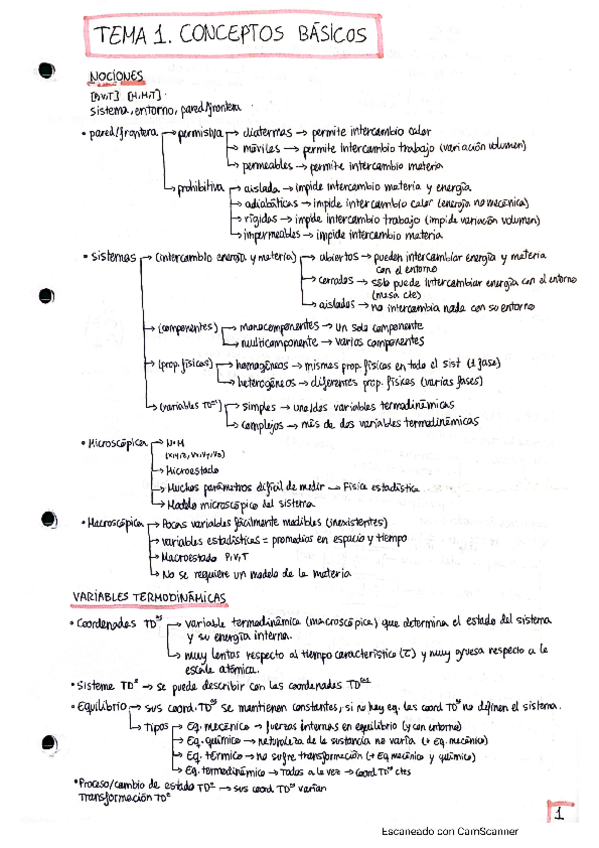 TEMA 1. CONCEPTOS BÁSICOS
NOCIONES
[P,V,T] [H,M,T]
sistema, entorno, pared/frontera
• pared/frontera → permisiva → diatermas → permite intercambio calor
→ móviles → permite intercambio trabajo (variación volumen)
→ permeables → permite intercambio materia
→ prohibitiva → aislada → impide intercambio materia y energía
→ adiabáticas → impide intercambio calor (energía no mecánica)
→ rígidas → impide intercambio trabajo (impide variación volumen)
→ impermeables → impide intercambio materia
• Sistemas → (intercambio energía y materia) → abiertos → pueden intercambiar energía y materia
con el entorno
→ cerrados → sólo puede intercambiar energía con el entorno
(masa cte)
→ aislados → no intercambia nada con su entorno
→ (componentes) → monocomponentes → un solo componente
→ multicomponente → varios componentes
→ (prop. físicas) → homogéneos → mismas prop. físicas en todo el sist (1 fase)
→ heterogéneos → diferentes prop. físicas (varias fases)
→ (variables TD) → simples → una/dos variables termodinámicas
→ complejos → más de dos variables termodinámicas
• Microscópica → N·M
→ Microestado
→ Muchos parámetros difícil de medir → Física estadística
→ Modelo microscópico del sistema
• Macroscópica → Pocas variables fácilmente medibles (inexistentes)
→ variables estadísticas = promedios en espacio y tiempo
→ Macroestado P,V,T
→ No se requiere un modelo de la materia
VARIABLES TERMODINÁMICAS
• Coordenadas TD → variable termodinámica (macroscópica) que determina el estado del sistema
y su energía interna.
→ muy lentas respecto al tiempo característico (τ) y muy gruesa respecto a la
escala atómica.
• Sistema TD → se puede describir con las coordenadas TD
• Equilibrio → sus coord. TD se mantienen constantes, si no hay eq. las coord TD no definen el sistema.
→ Tipos → Eq. mecánico → fuerzas internas en equilibrio (y con entorno)
→ Eq. químico → naturaleza de la sustancia no varía (+ Eq. mecánico)
→ Eq. térmico → no sufre transformación (+ Eq mecánico y químico)
→ Eq. termodinámico → Todas a la vez → coord TD ctes
• Proceso/cambio de estado TD → sus coord TD varían
Transformación TD
1
Escaneado con CamScanner